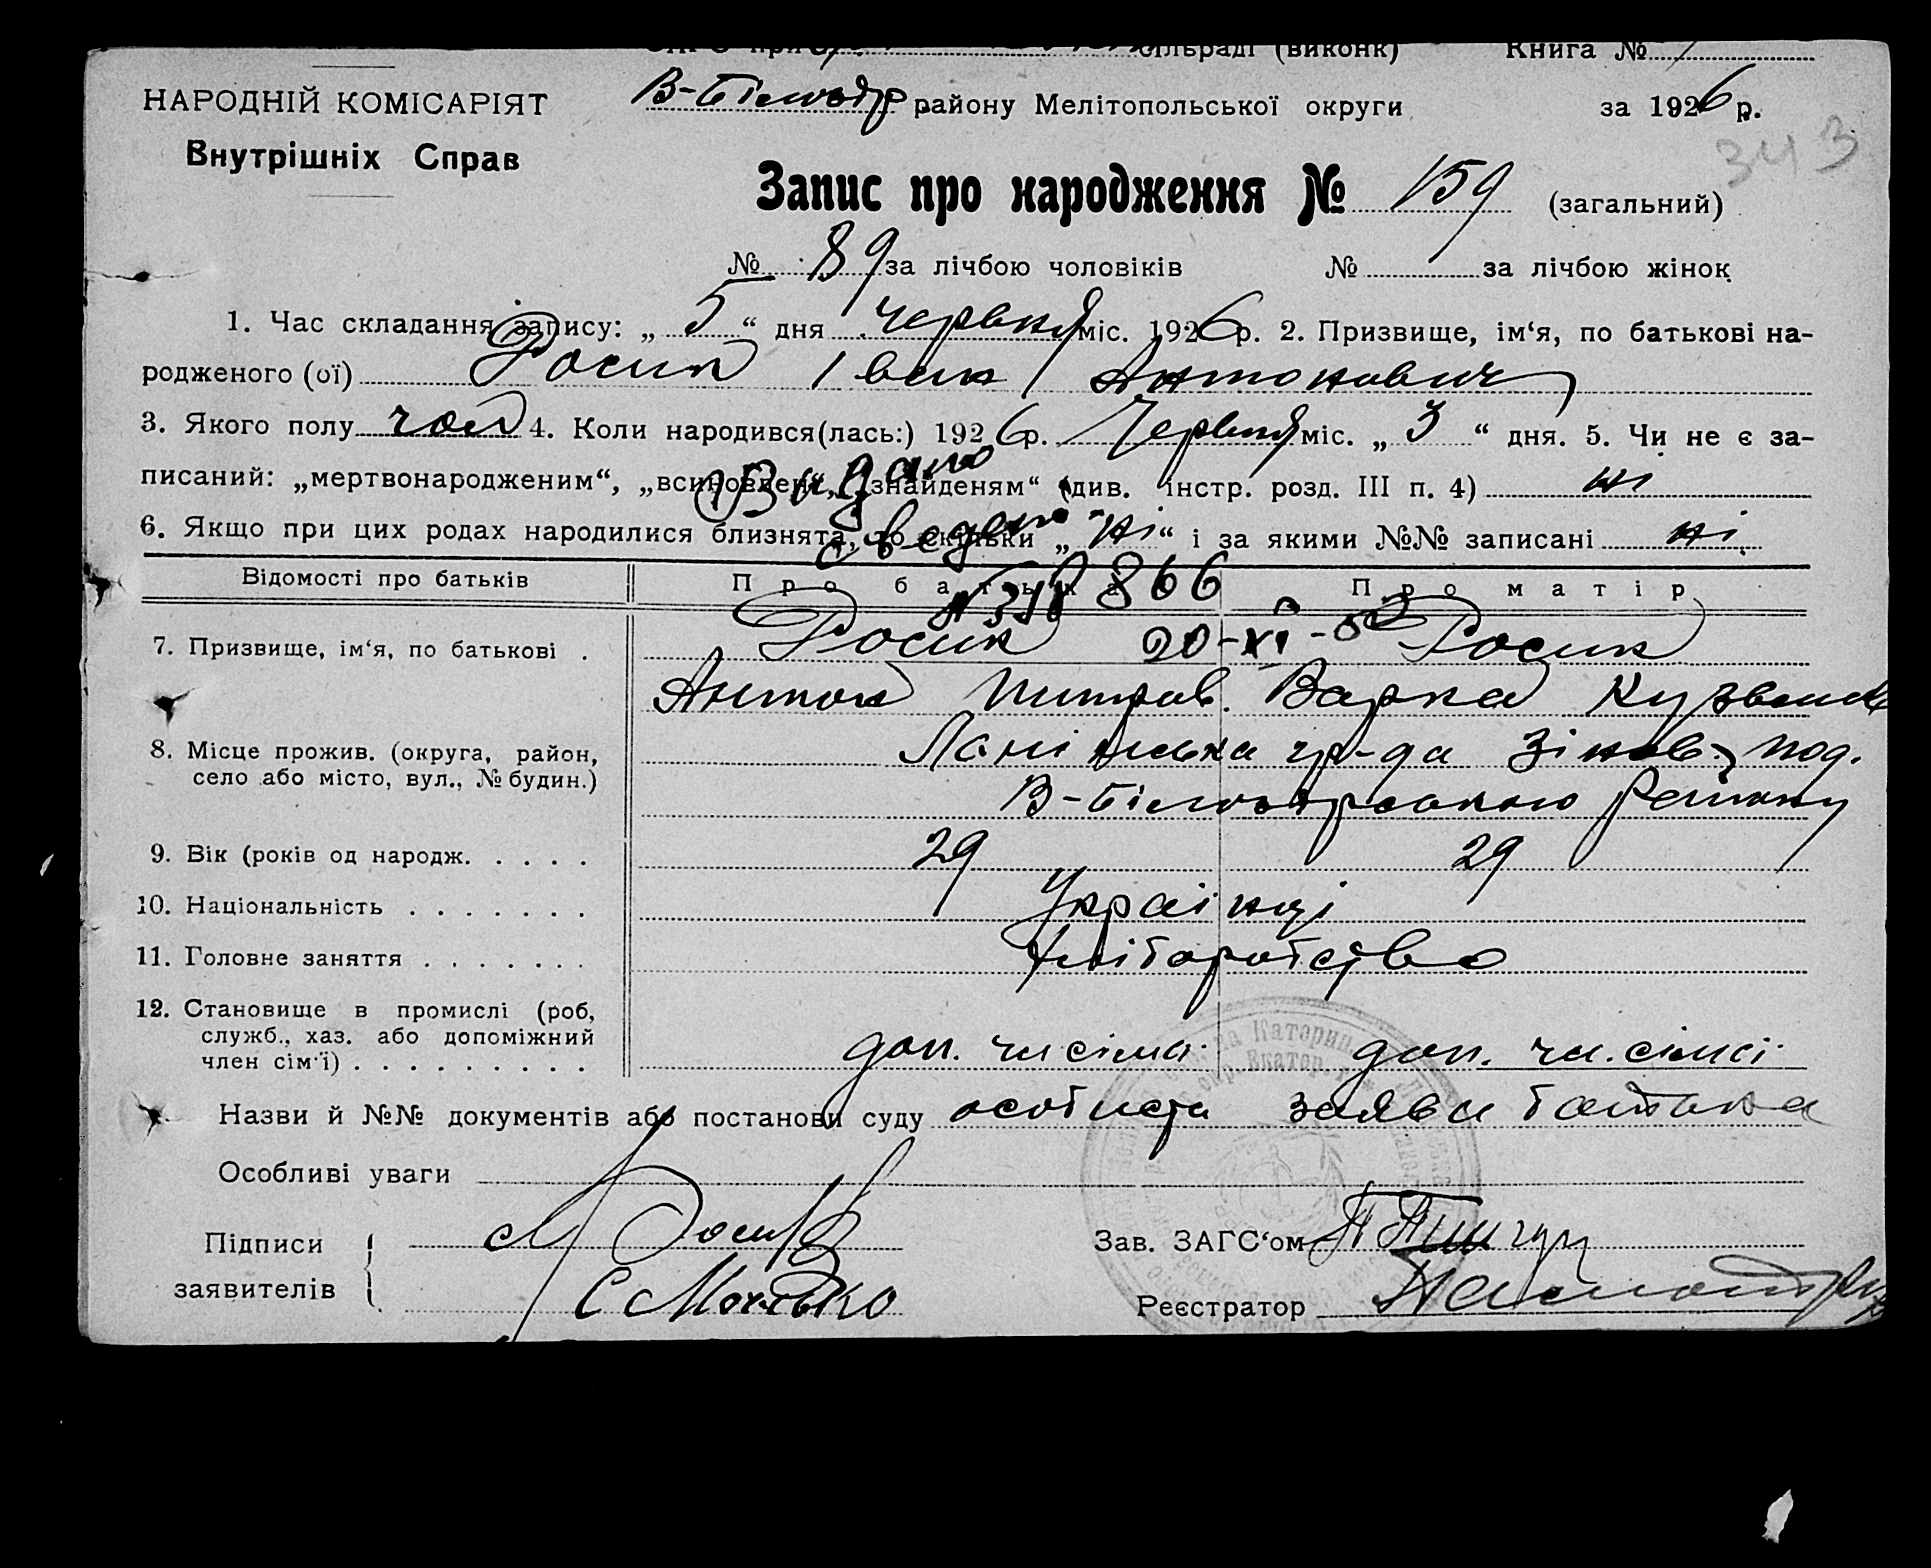 при сільраді (виконк) Книга №
НАРОДНІЙ КОМІСАРІЯТ В-Білозір району Мелітопольської округи за 1926 р.
Внутрішніх Справ
343
Запис про народження № 159 (загальний)
№ 89 за лічбою чоловіків № за лічбою жінок
1. Час складання запису: „ 5 “ дня червня міс. 1926 р. 2. Призвище, ім‘я, по батькові на-
родженого (ої) Росик Іван Антонович
3. Якого полу чол 4. Коли народився(лась:) 1926 р. Червня міс. „ 3 “ дня. 5. Чи не є за-
писаний: „мертвонародженим“, „всиновлен“, „знайденям“ (див. інстр. розд. III п. 4) ні
Видано
6. Якщо при цих родах народилися близнята, то скільки „ ні “ і за якими №№ записані ні
Відомості про батьків Про батька Про матір
866
7. Призвище, ім‘я, по батькові . Росик Росик
20-XI-5
Антон Питров. Варка
8. Місце прожив. (округа, район,
село або місто, вул., № будин.)
В-Білозірського Району
9. Вік (років од народж. . . . . 29 29
10. Національність . . . . . . . Українці
11. Головне заняття . . . . . . . Хліборобство
12. Становище в промислі (роб,
служб., хаз. або допоміжний
член сім‘ї) . . . . . . . . . доп. чл сімі доп. чл. сімсі
Назви й №№ документів або постанови суду особиста заява батька
Особливі уваги
Підписи
заявителів
Зав. ЗАГС‘ом
Реєстратор